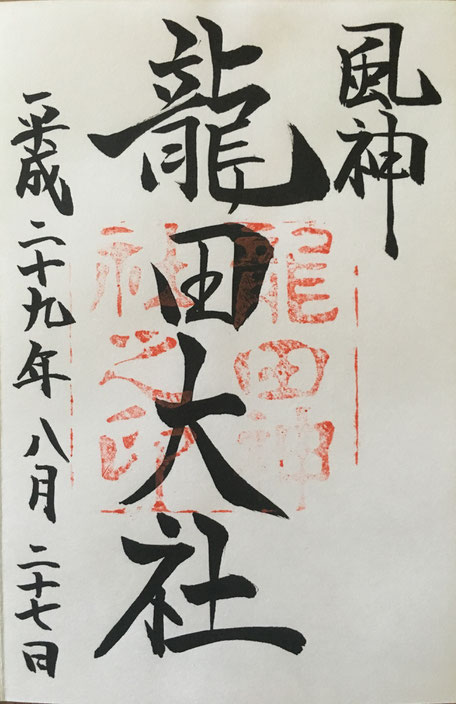 風神
龍田大社
平成二十九年八月二十七日
龍田神
社之印